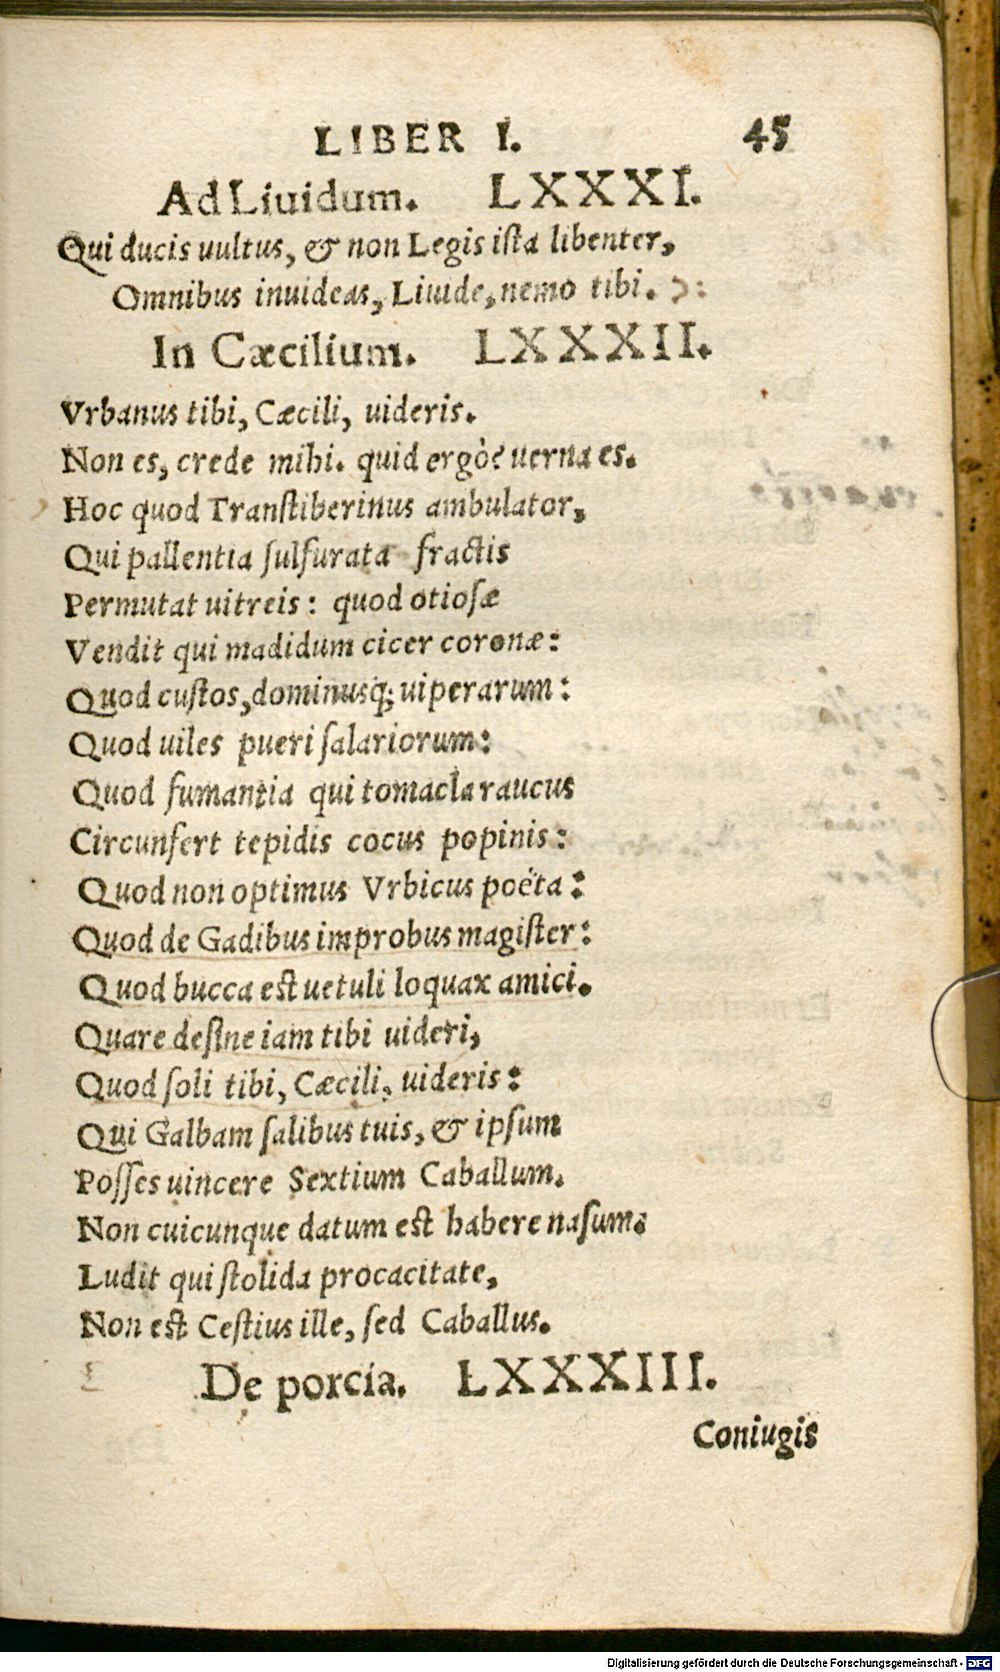 LIBER I. 45
Ad Liuidum. LXXXI.
Qui ducis uultus, & non Legis iſta libenter,
Omnibus inuideas, Liuide, nemo tibi.
In Cæcilium. LXXXII.
Vrbanus tibi, Cæcili, uideris.
Non es, crede mihi. quid ergò? uerna es.
Hoc quod Tranſtiberinus ambulator,
Qui pallentia ſulfurata fractis
Permutat uitreis: quod otioſæ
Vendit qui madidum cicer coronæ:
Quod cuſtos, dominusq; uiperarum:
Quod uiles pueri ſalariorum:
Quod fumantia qui tomacla raucus
Circunfert tepidis cocus popinis:
Quod non optimus Vrbicus poëta:
Quod de Gadibus improbus magiſter:
Quod bucca eſt uetuli loquax amici.
Quare deſine iam tibi uideri,
Quod ſoli tibi, Cæcili, uideris:
Qui Galbam ſalibus tuis, & ipſum
Poſſes uincere Sextium Caballum.
Non cuicunque datum eſt habere naſum.
Ludit qui ſtolida procacitate,
Non eſt Ceſtius ille, ſed Caballus.
De porcia. LXXXIII.
Coniugis
Digitalisierung gefördert durch die Deutsche Forschungsgemeinschaft - DFG